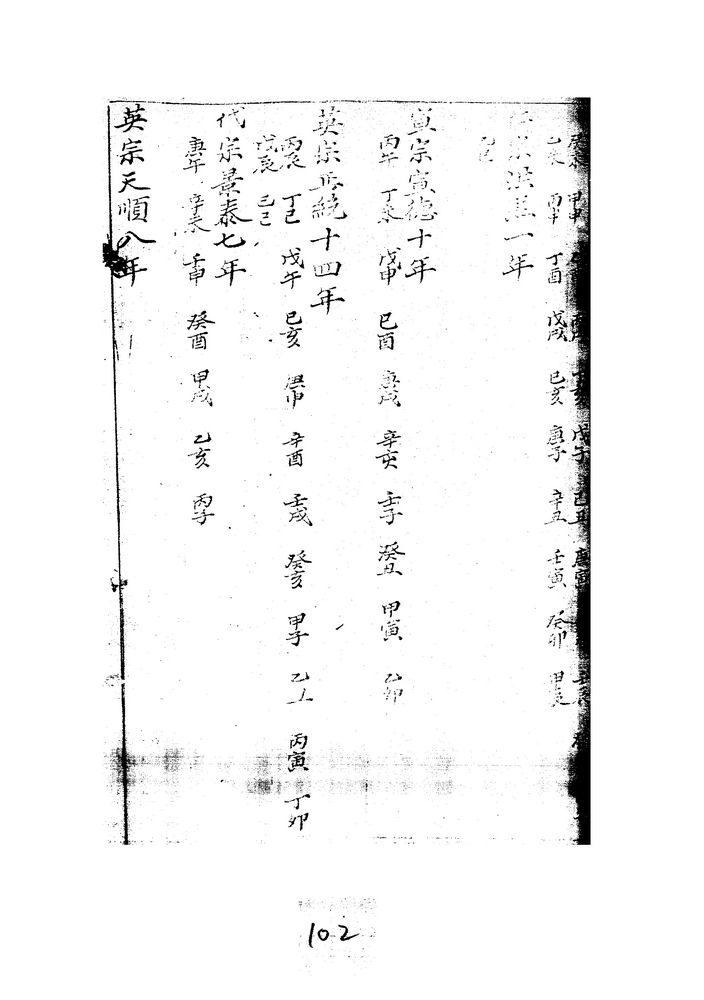 甲申 丙戌 丁亥 戊子 己丑 庚寅 壬辰
乙未 丙申 丁酉 戊戌 己亥 庚子 辛丑 壬寅 癸卯 甲辰
宗洪熙一年
乙巳
宣宗宣德十年
丙午 丁未 戊申 己酉 庚戌 辛亥 壬子 癸丑 甲寅 乙卯
英宗正統十四年
丙辰 丁巳 戊午 己亥 酉 壬戌 癸亥 甲子 乙 丙寅 丁卯
戊辰 己巳
代宗景泰七年
庚午 辛未 壬申 癸酉 甲戌 乙亥 丙子
英宗天順八年
102